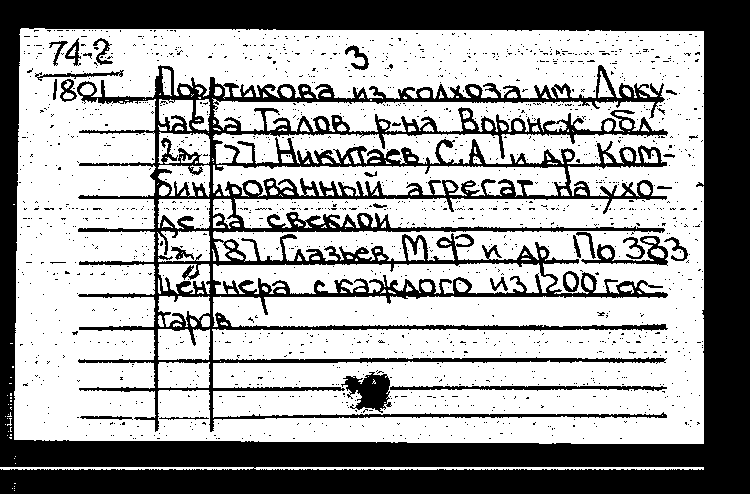 74-2
1801
3
Портикова из колхоза им. Доку-
чаева Талов р-на Воронеж обл.
[7]. Никитаев, С.А и др. Ком-
бинированный агрегат на ухо-
де за свеклой
[8]. Глазьев, М.Ф и др. По 383
центнера с каждого из 1200 гек-
таров